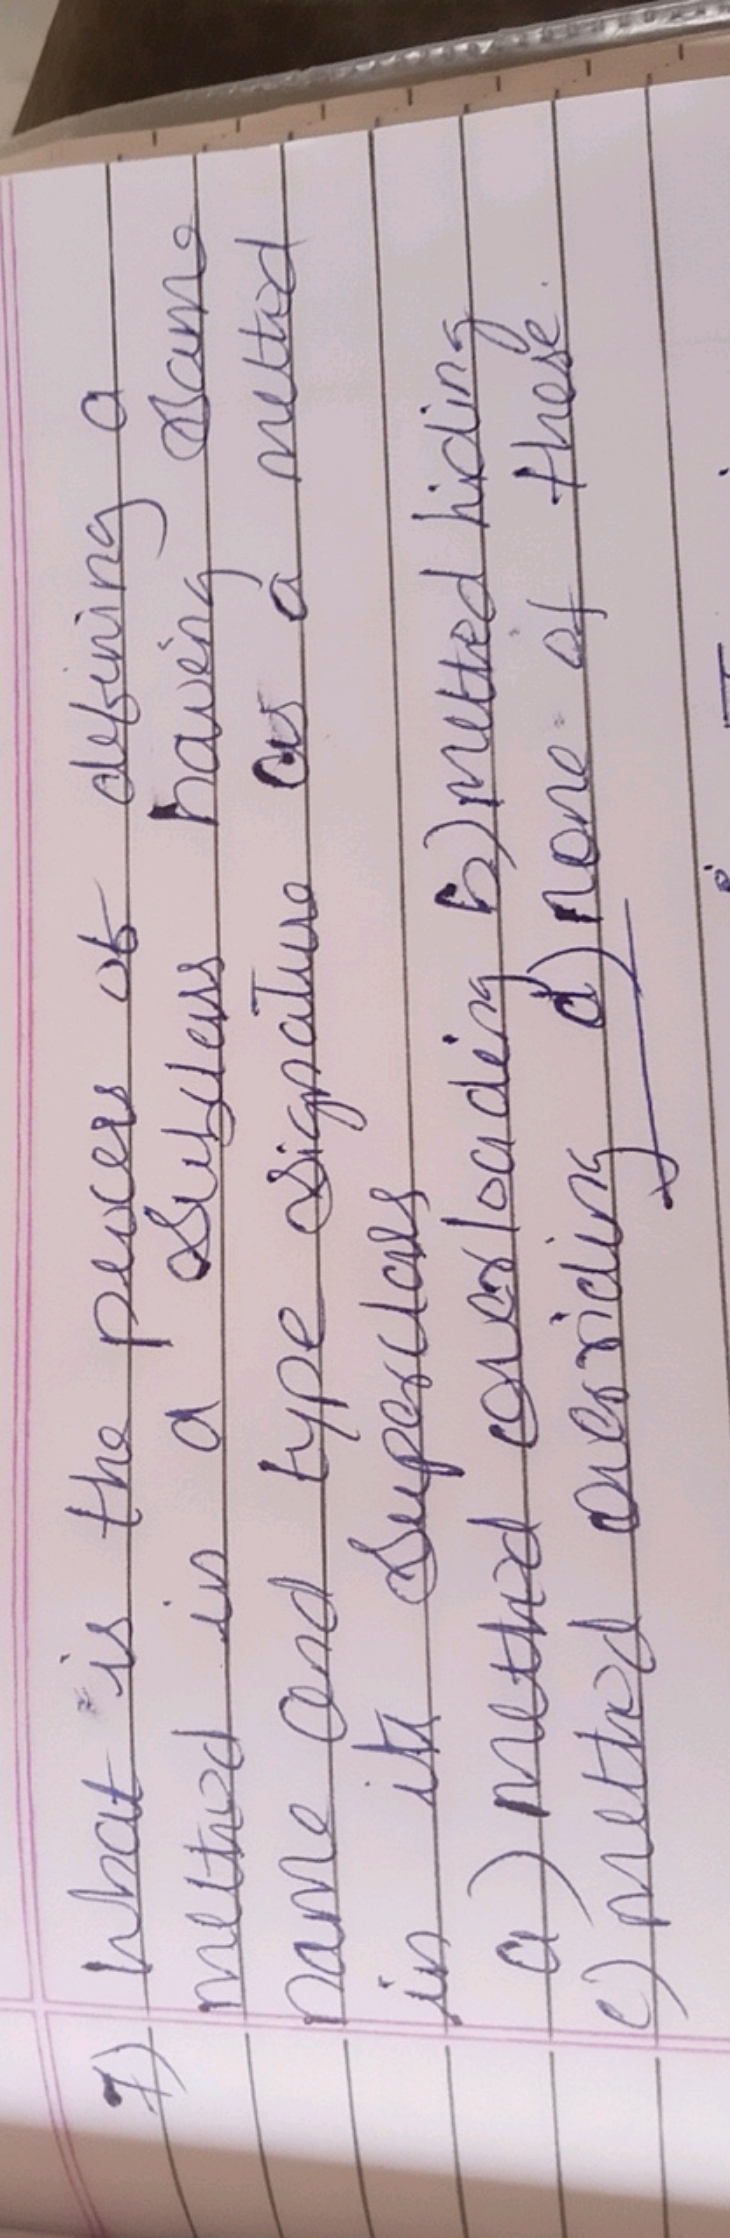 7) What is the process of defining a
method in a subclass having same
name and type signature as a method
in its superclass
a) method overloading b) method hiding
c) method overriding d) none of these.